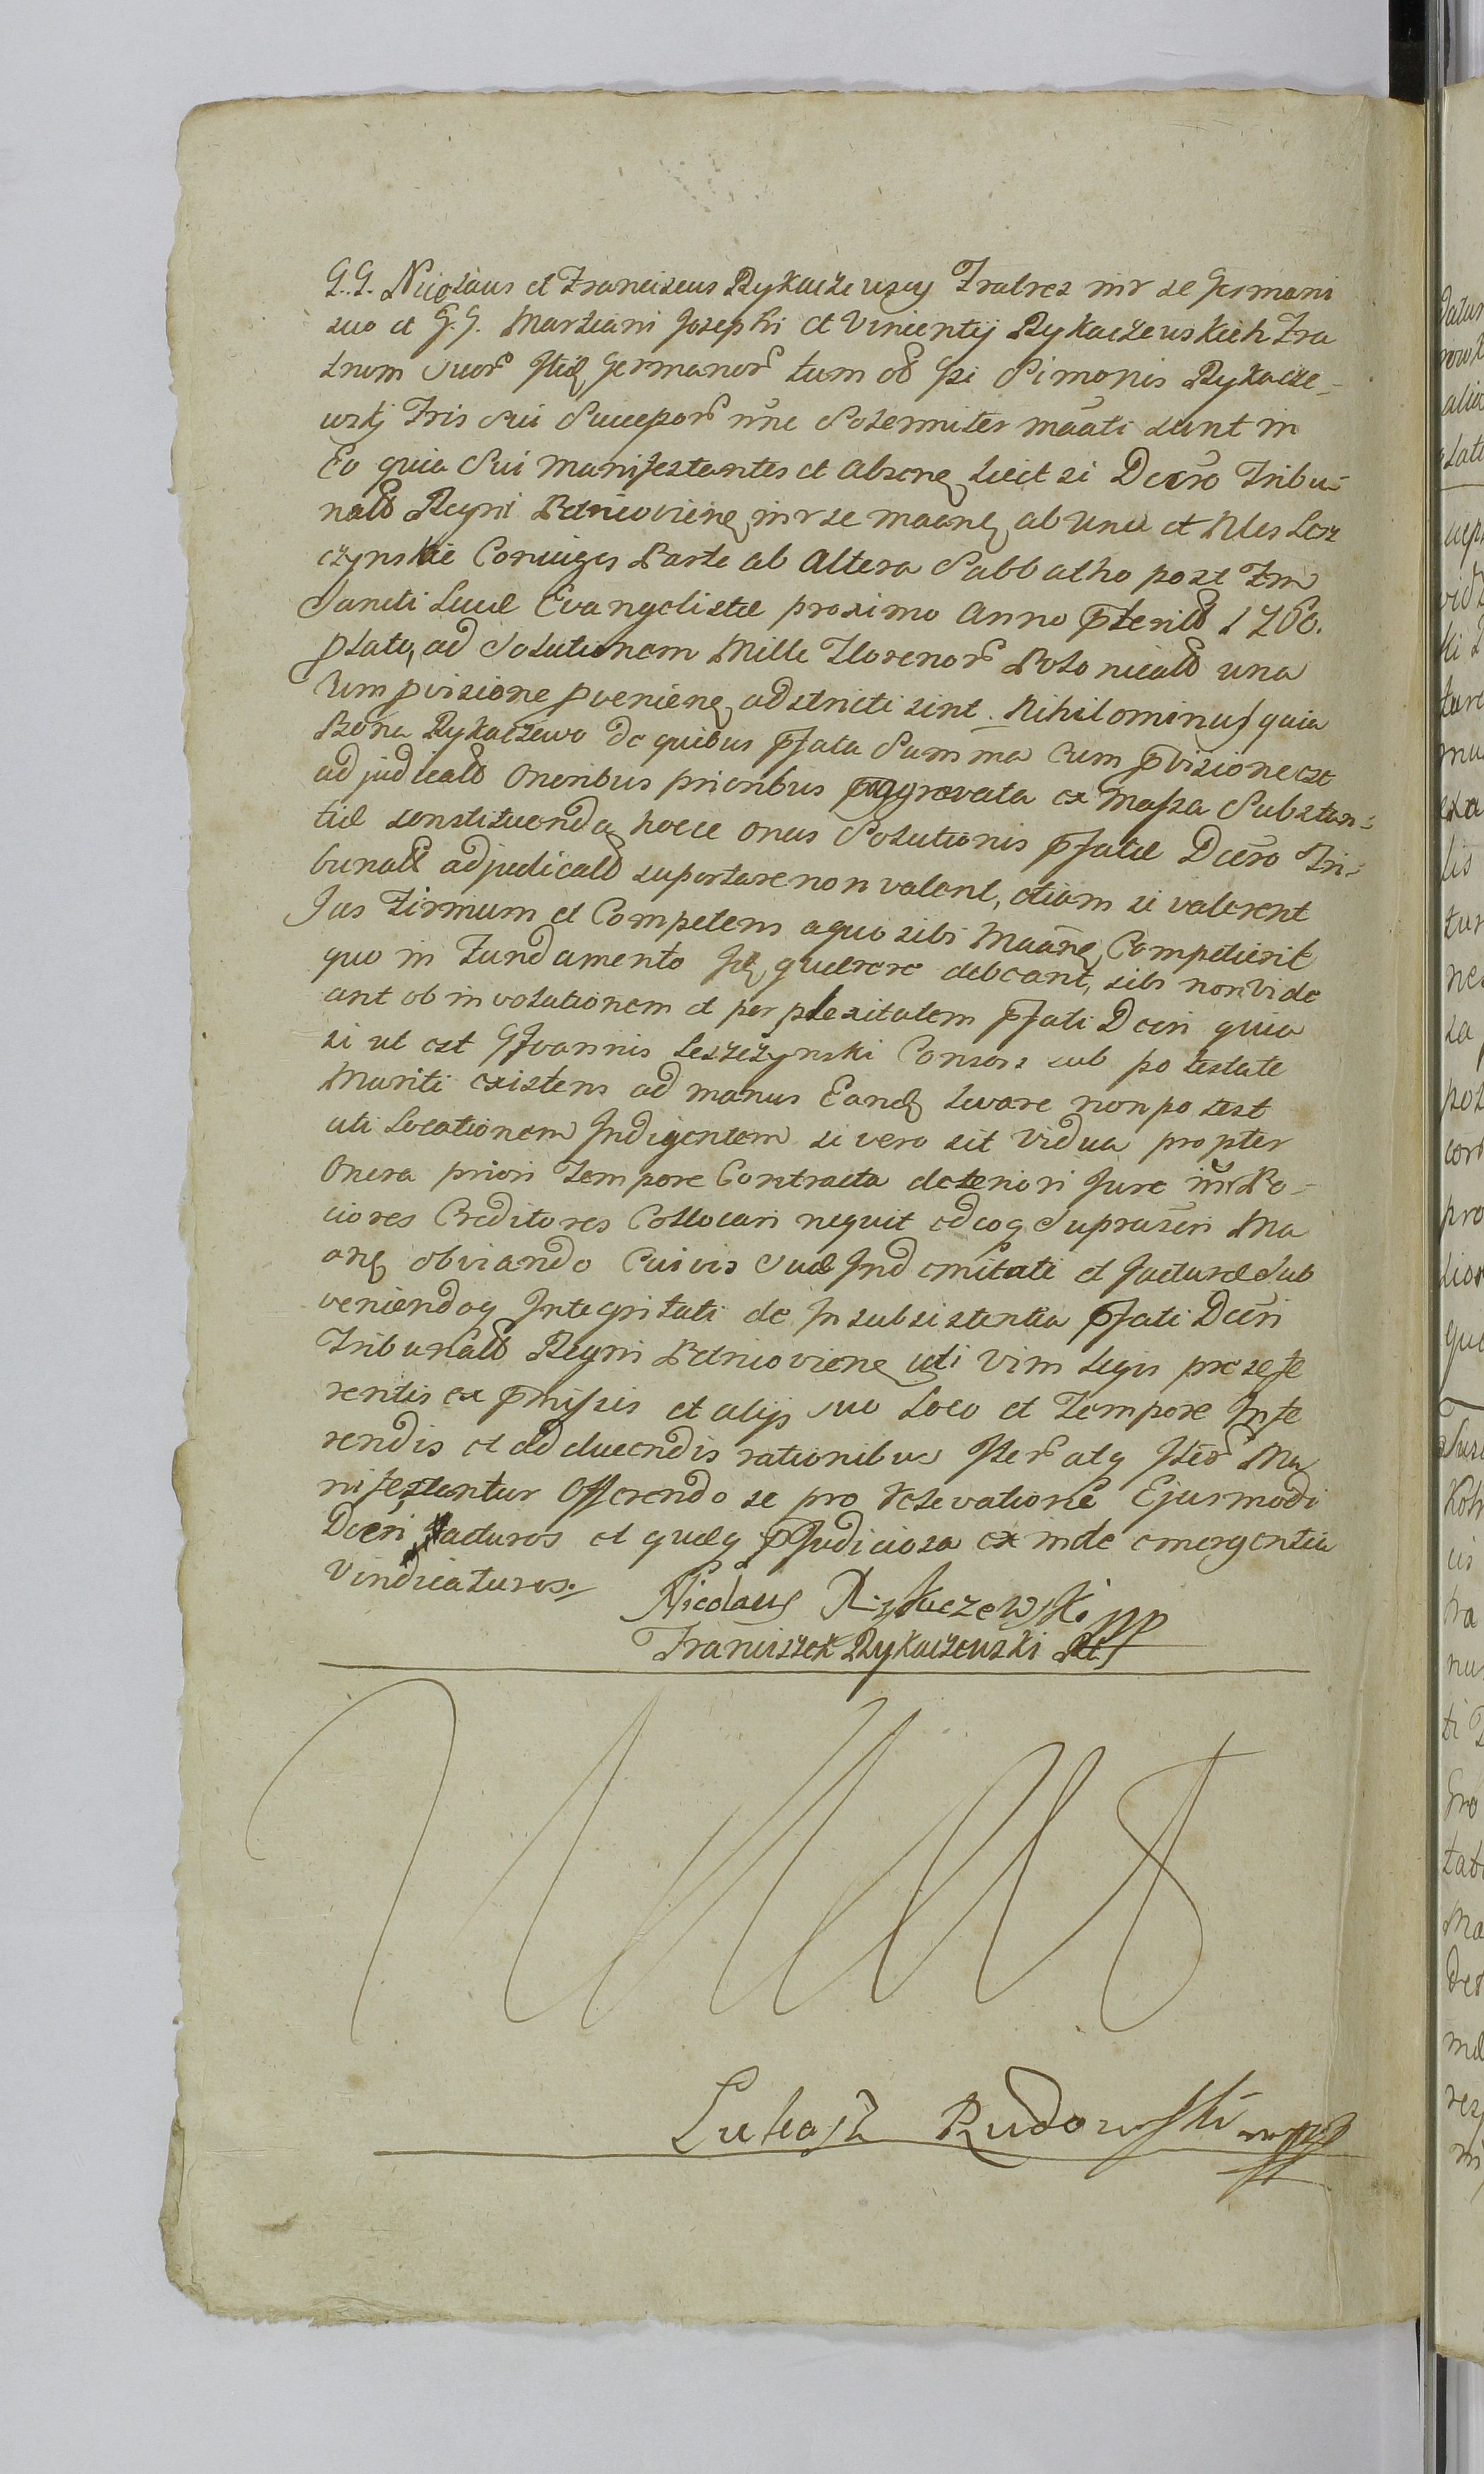 G.G. Nicolaus et Franciscus Rykaczewscy Fratres inr se Germani
suo et G.G. Martiani Josephi et Vincentij Rykaczewskich Fra
trum suor Itid Germanor tum olt Gsi Simonis Rykacze-
wski Fris sui Successor nnc Solemniter maati sunt in
Eo quia Sui manifestantes et Absene licet si Dcero Tribu-
nalt Regni Petricoviene inr se maane ab Una et Nles Lesz
czynskie Coniuges Parte ab Altera Sabbatho post Fm
Sancti Lucæ Evangelistæ proximo Anno pterito 1760.
plato, ad Solutionem Mille Florenor Polonicalt una
Cum pvisione pveniene adstricti sint. Nihilominus quia
Bona Rykaczewo de quibus pfata Summa Cum pvisione est
adjudicalt Oneribus prioribus paggravata ex Massa Substan-
tiæ constituenda hocce onus Solutionis pfatæ Dcero Tri-
bunalt adjudicalt suportare non valent, etiam si valerent
Jus Firmum et Competens a quo sibi Maane Competierit
quo in Fundamento Id quærere debeant, sibi non vide
ant ob involutionem et perplexitatem pfati Dceri quia
si ut est GJoannis Leszczynski Consors sub potestate
Mariti existens ad manus Eand levare non potest
uti Locationem Indigentem si vero sit Vidua propter
Onera priori Tempore Contracta deteriori Jure inr Po-
ciores Creditores Collocari nequit adeoq Suprascri Ma
ane obviando Cuivis suæ Indemnitati et Jacturæ Sub
veniendoq Integritati de Insubsistentia pfati Dceri
Tribunalt Regni Petricoviene uti Vim Legis præsefe
rentis ex pmissis et alijs suo Loco et Tempore Infe
rendis et adducendis rationibus Iter atq Iter Ma
nifestantur Offerendo se pro relevatione Ejusmodi
Dceri facturos et quæq pjudiciosa ex inde emergentia
Vindicaturos.
Nicolaus Rykaczewski mpp
Franciszek Rykaczewski
Łukasz Rudowski mpp